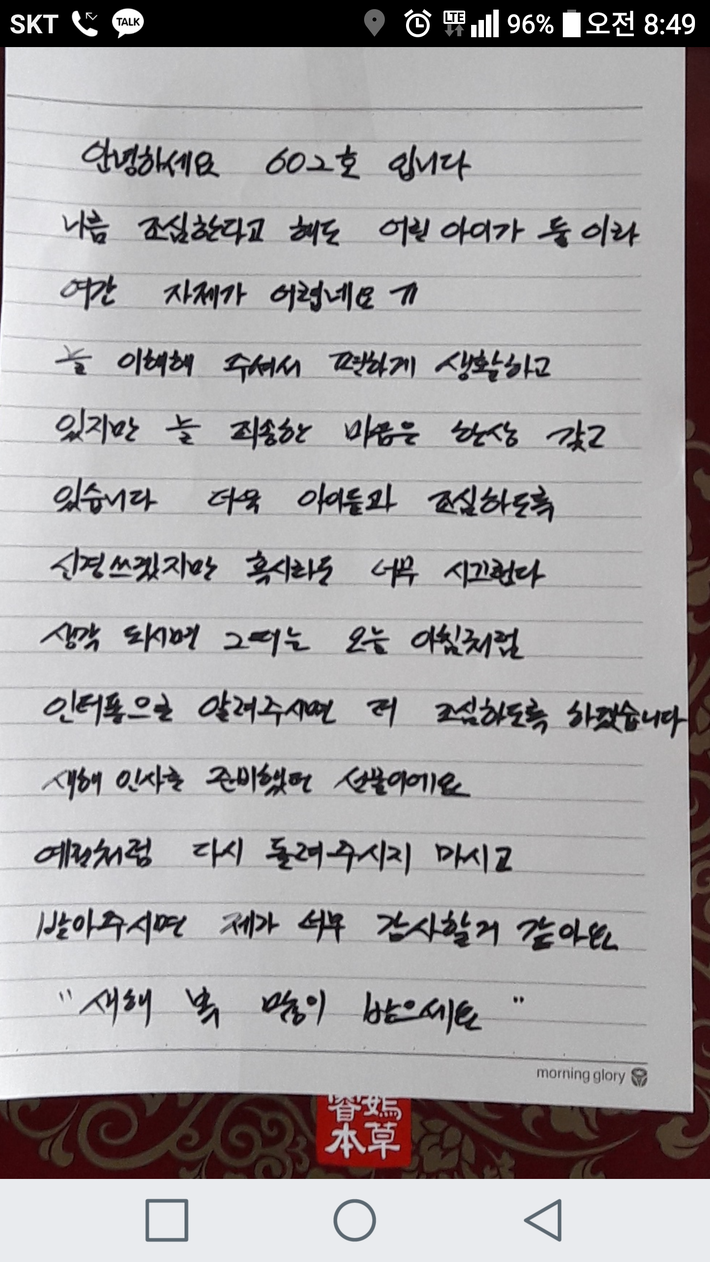 SKT TALK LTE 96% 오전 8:49
안녕하세요 602호 입니다
나름 조심한다고 해도 어린 아이가 둘 이라
여간 자제가 어렵네요 ㅠ
늘 이해해 주셔서 편하게 생활하고
있지만 늘 죄송한 마음은 항상 갖고
있습니다 더욱 아이들과 조심하도록
신경쓰겠지만 혹시라도 너무 시끄럽다
생각 되시면 그때는 오늘 아침처럼
인터폰으로 알려주시면 더 조심하도록 하겠습니다
새해 인사를 준비했던 선물이에요
예전처럼 다시 돌려주시지 마시고
받아주시면 제가 너무 감사할거 같아요
"새해 복 많이 받으세요"
morning glory
本草